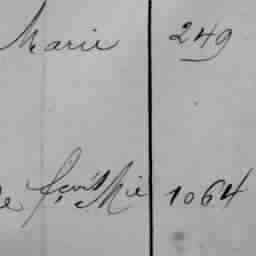 Marie 249
fçois Mie 1064